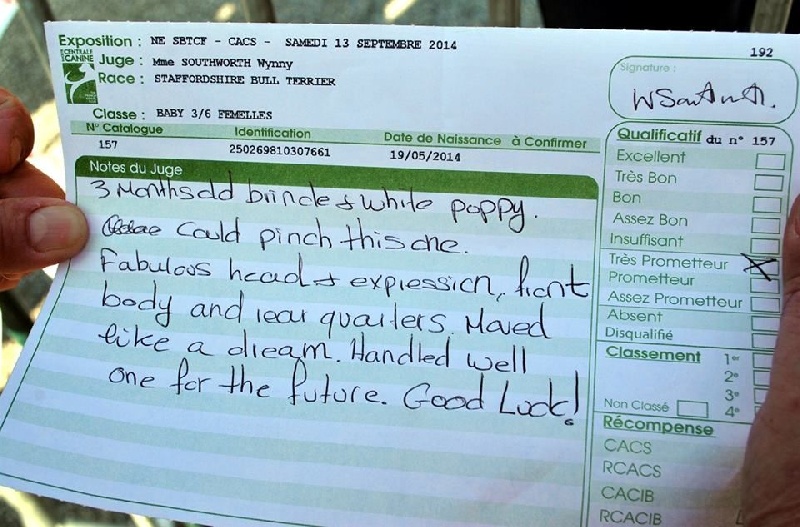 Exposition : NE SBTCF - CACS - SAMEDI 13 SEPTEMBRE 2014
192
CENTRALE
CANINE
Juge : Mme SOUTHWORTH Wynny
Race : STAFFORDSHIRE BULL TERRIER
Classe : BABY 3/6 FEMELLES
N° Catalogue Identification Date de Naissance à Confirmer
157 250269810307661 19/05/2014
Notes du Juge
3 months old brindle & white puppy.
Could pinch this one.
Fabulous head & expression, front
body and rear quarters. Moved
like a dream. Handled well
one for the future. Good Luck!
Signature :
Qualificatif du n° 157
Excellent
Très Bon
Bon
Assez Bon
Insuffisant
Très Prometteur X
Prometteur
Assez Prometteur
Absent
Disqualifié
Classement 1er
2e
3e
Non Classé 4e
Récompense
CACS
RCACS
CACIB
RCACIB